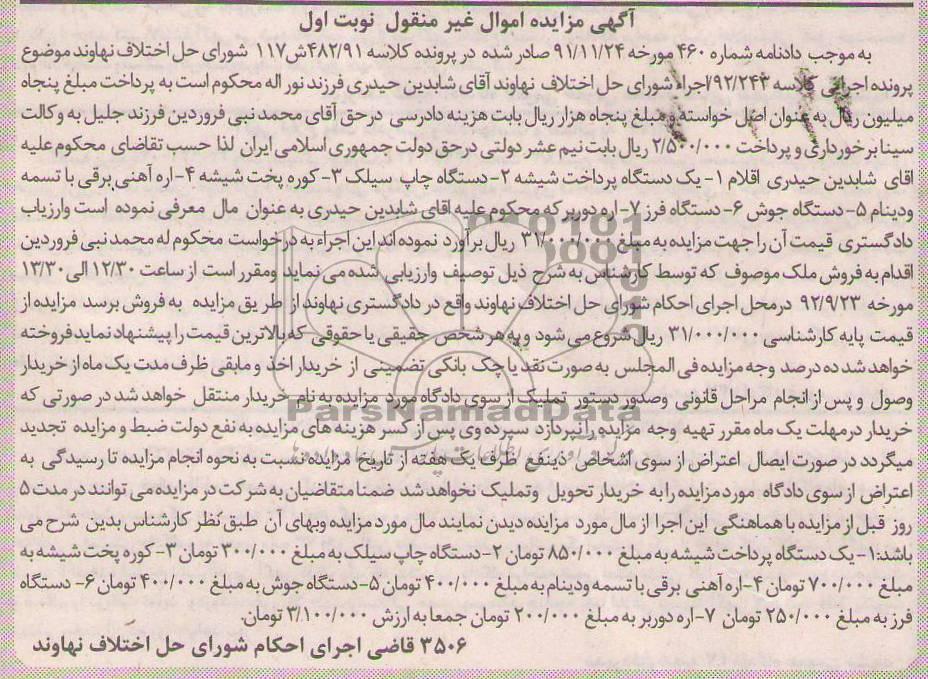 آگهی مزایده اموال غیر منقول نوبت اول
به موجب دادنامه شماره ۴۶۰ مورخه ۹۱/۱۱/۲۴ صادر شده در پرونده کلاسه ۴۸۲/۹۱ش۱۱۷ شورای حل اختلاف نهاوند موضوع
پرونده اجرائی کلاسه ۹۲/۲۴۳/اجراء شورای حل اختلاف نهاوند آقای شابدین حیدری فرزند نور اله محکوم است به پرداخت مبلغ پنجاه
میلیون ریال به عنوان اصل خواسته و مبلغ پنجاه هزار ریال بابت هزینه دادرسی درحق آقای محمد نبی فروردین فرزند جلیل به وکالت
سینا برخورداری و پرداخت ۲/۵۰۰/۰۰۰ ریال بابت نیم عشر دولتی درحق دولت جمهوری اسلامی ایران لذا حسب تقاضای محکوم علیه
اقای شابدین حیدری اقلام ۱- یک دستگاه پرداخت شیشه ۲-دستگاه چاپ سیلک ۳-کوره پخت شیشه ۴-اره آهنی برقی با تسمه
ودینام ۵-دستگاه جوش ۶-دستگاه فرز ۷-اره دوربر که محکوم علیه اقای شابدین حیدری به عنوان مال معرفی نموده است وارزیاب
دادگستری قیمت آن را جهت مزایده به مبلغ ۳۱/۰۰۰/۰۰۰ ریال برآورد نموده اند این اجراء به درخواست محکوم له محمد نبی فروردین
اقدام به فروش ملک موصوف که توسط کارشناس به شرح ذیل توصیف وارزیابی شده می نماید ومقرر است از ساعت ۱۲/۳۰ الی ۱۳/۳۰
مورخه ۹۲/۹/۲۳ درمحل اجرای احکام شورای حل اختلاف نهاوند واقع در دادگستری نهاوند از طریق مزایده به فروش برسد مزایده از
قیمت پایه کارشناسی ۳۱/۰۰۰/۰۰۰ ریال شروع می شود و به هر شخص حقیقی یا حقوقی که بالاترین قیمت را پیشنهاد نماید فروخته
خواهد شد ده درصد وجه مزایده فی المجلس به صورت نقد یا چک بانکی تضمینی از خریدار اخذ و مابقی ظرف مدت یک ماه از خریدار
وصول و پس از انجام مراحل قانونی وصدور دستور تملیک از سوی دادگاه مورد مزایده به نام خریدار منتقل خواهد شد در صورتی که
خریدار درمهلت یک ماه مقرر تهیه وجه مزایده را نپردازد سپرده وی پس از کسر هزینه های مزایده به نفع دولت ضبط و مزایده تجدید
میگردد در صورت ایصال اعتراض از سوی اشخاص ذینفع ظرف یک هفته از تاریخ مزایده نسبت به نحوه انجام مزایده تا رسیدگی به
اعتراض از سوی دادگاه مورد مزایده را به خریدار تحویل وتملیک نخواهد شد ضمنا متقاضیان به شرکت در مزایده می توانند در مدت ۵
روز قبل از مزایده با هماهنگی این اجرا از مال مورد مزایده دیدن نمایند مال مورد مزایده وبهای آن طبق نظر کارشناس بدین شرح می
باشد:۱- یک دستگاه پرداخت شیشه به مبلغ ۸۵۰/۰۰۰ تومان ۲-دستگاه چاپ سیلک به مبلغ ۳۰۰/۰۰۰ تومان ۳-کوره پخت شیشه به
مبلغ ۷۰۰/۰۰۰ تومان ۴-اره آهنی برقی با تسمه ودینام به مبلغ ۴۰۰/۰۰۰ تومان ۵-دستگاه جوش به مبلغ ۴۰۰/۰۰۰ تومان ۶- دستگاه
فرز به مبلغ ۲۵۰/۰۰۰ تومان ۷-اره دوربر به مبلغ ۲۰۰/۰۰۰ تومان جمعا به ارزش ۳/۱۰۰/۰۰۰ تومان.
۳۵۰۶ قاضی اجرای احکام شورای حل اختلاف نهاوند
ParsNamadData